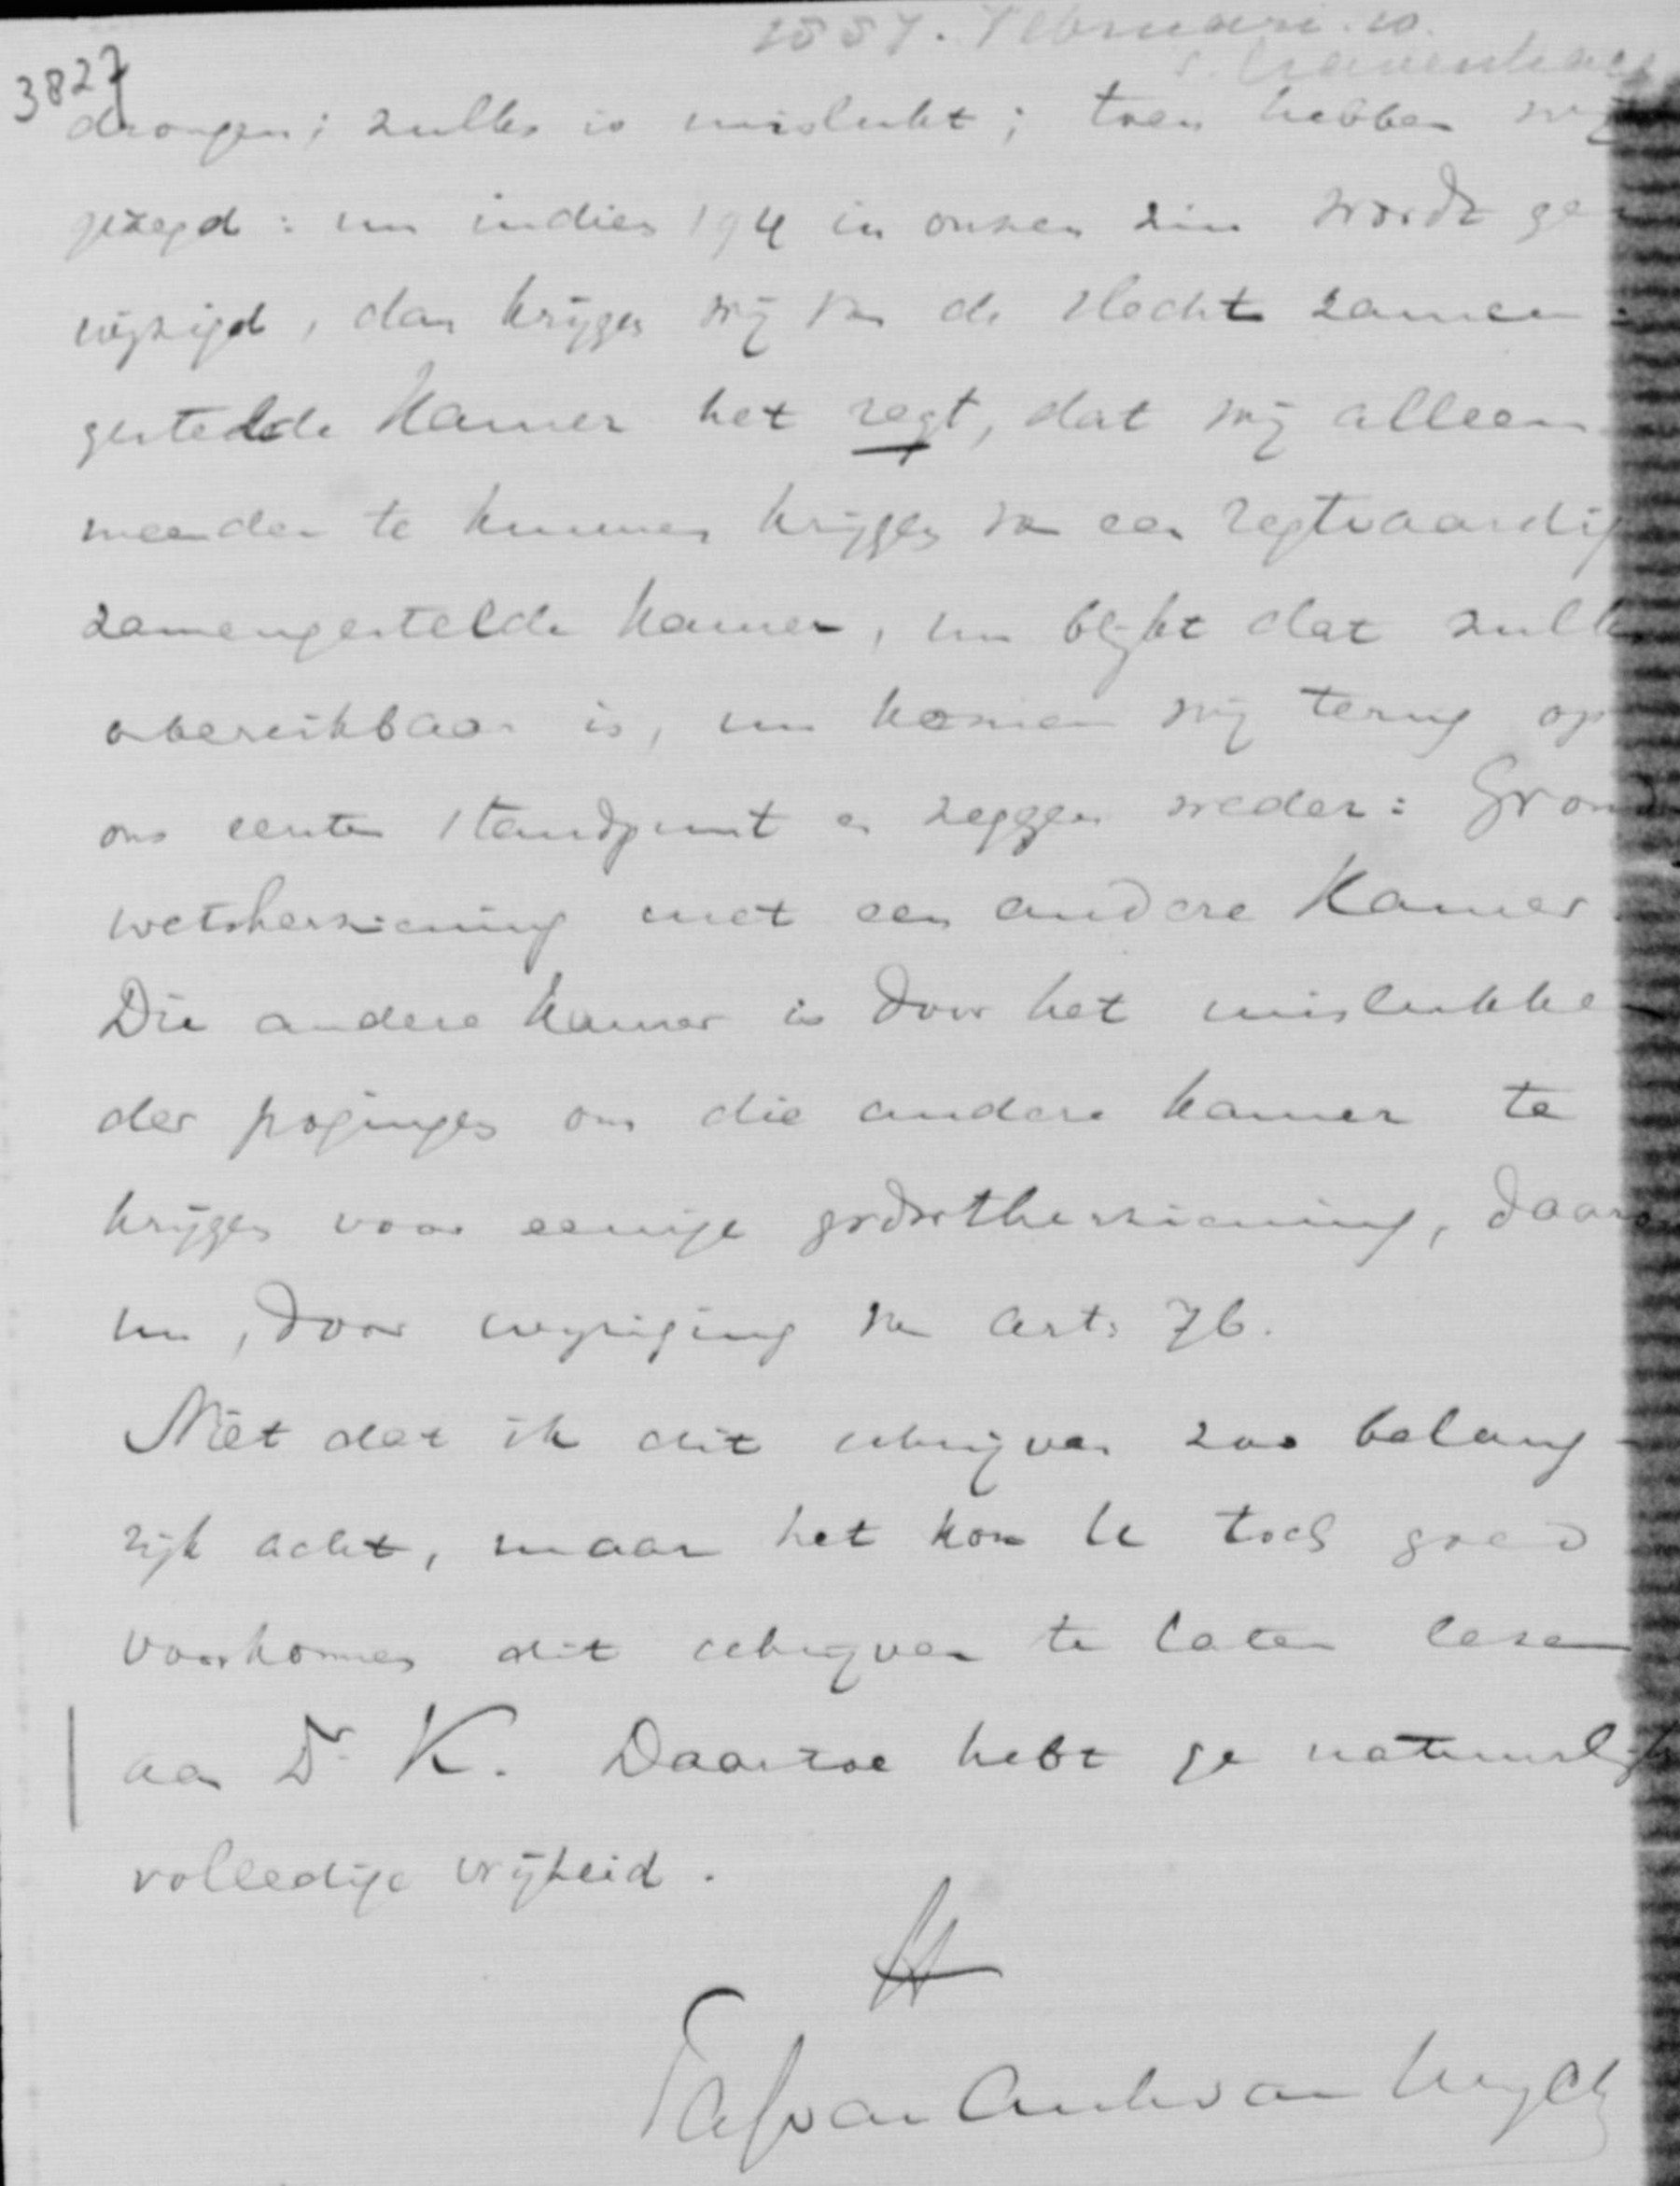 1887. Februari. 10.
's Gravenhage
3827
drongen; zulks is mislukt; toen hebben wij
gezegd: nu indien 194 in onzen zin wordt ge
wijzigd, dan krijgen wij van de slecht zamen
gestelde Kamer het regt, dat wij alleen
meenden te kunnen krijgen van een regtvaardig
zamengestelde kamer, nu blijkt dat zulks
onbereikbaar is, nu komen wij terug op
ons eerste standpunt en zeggen weder: Grond
wetsherziening met een andere Kamer
Die andere kamer is door het mislukken
der pogingen om die andere kamer te
krijgen voor eenige grdwetherziening, daar
nu, door wijziging van art. 76.
Niet dat ik dit schrijven zoo belang-
rijk acht, maar het kon U toch goed
voorkomen dit schrijven te laten lezen
aan Dr. K. Daartoe hebt ge natuurlijk
volledige vrijheid.